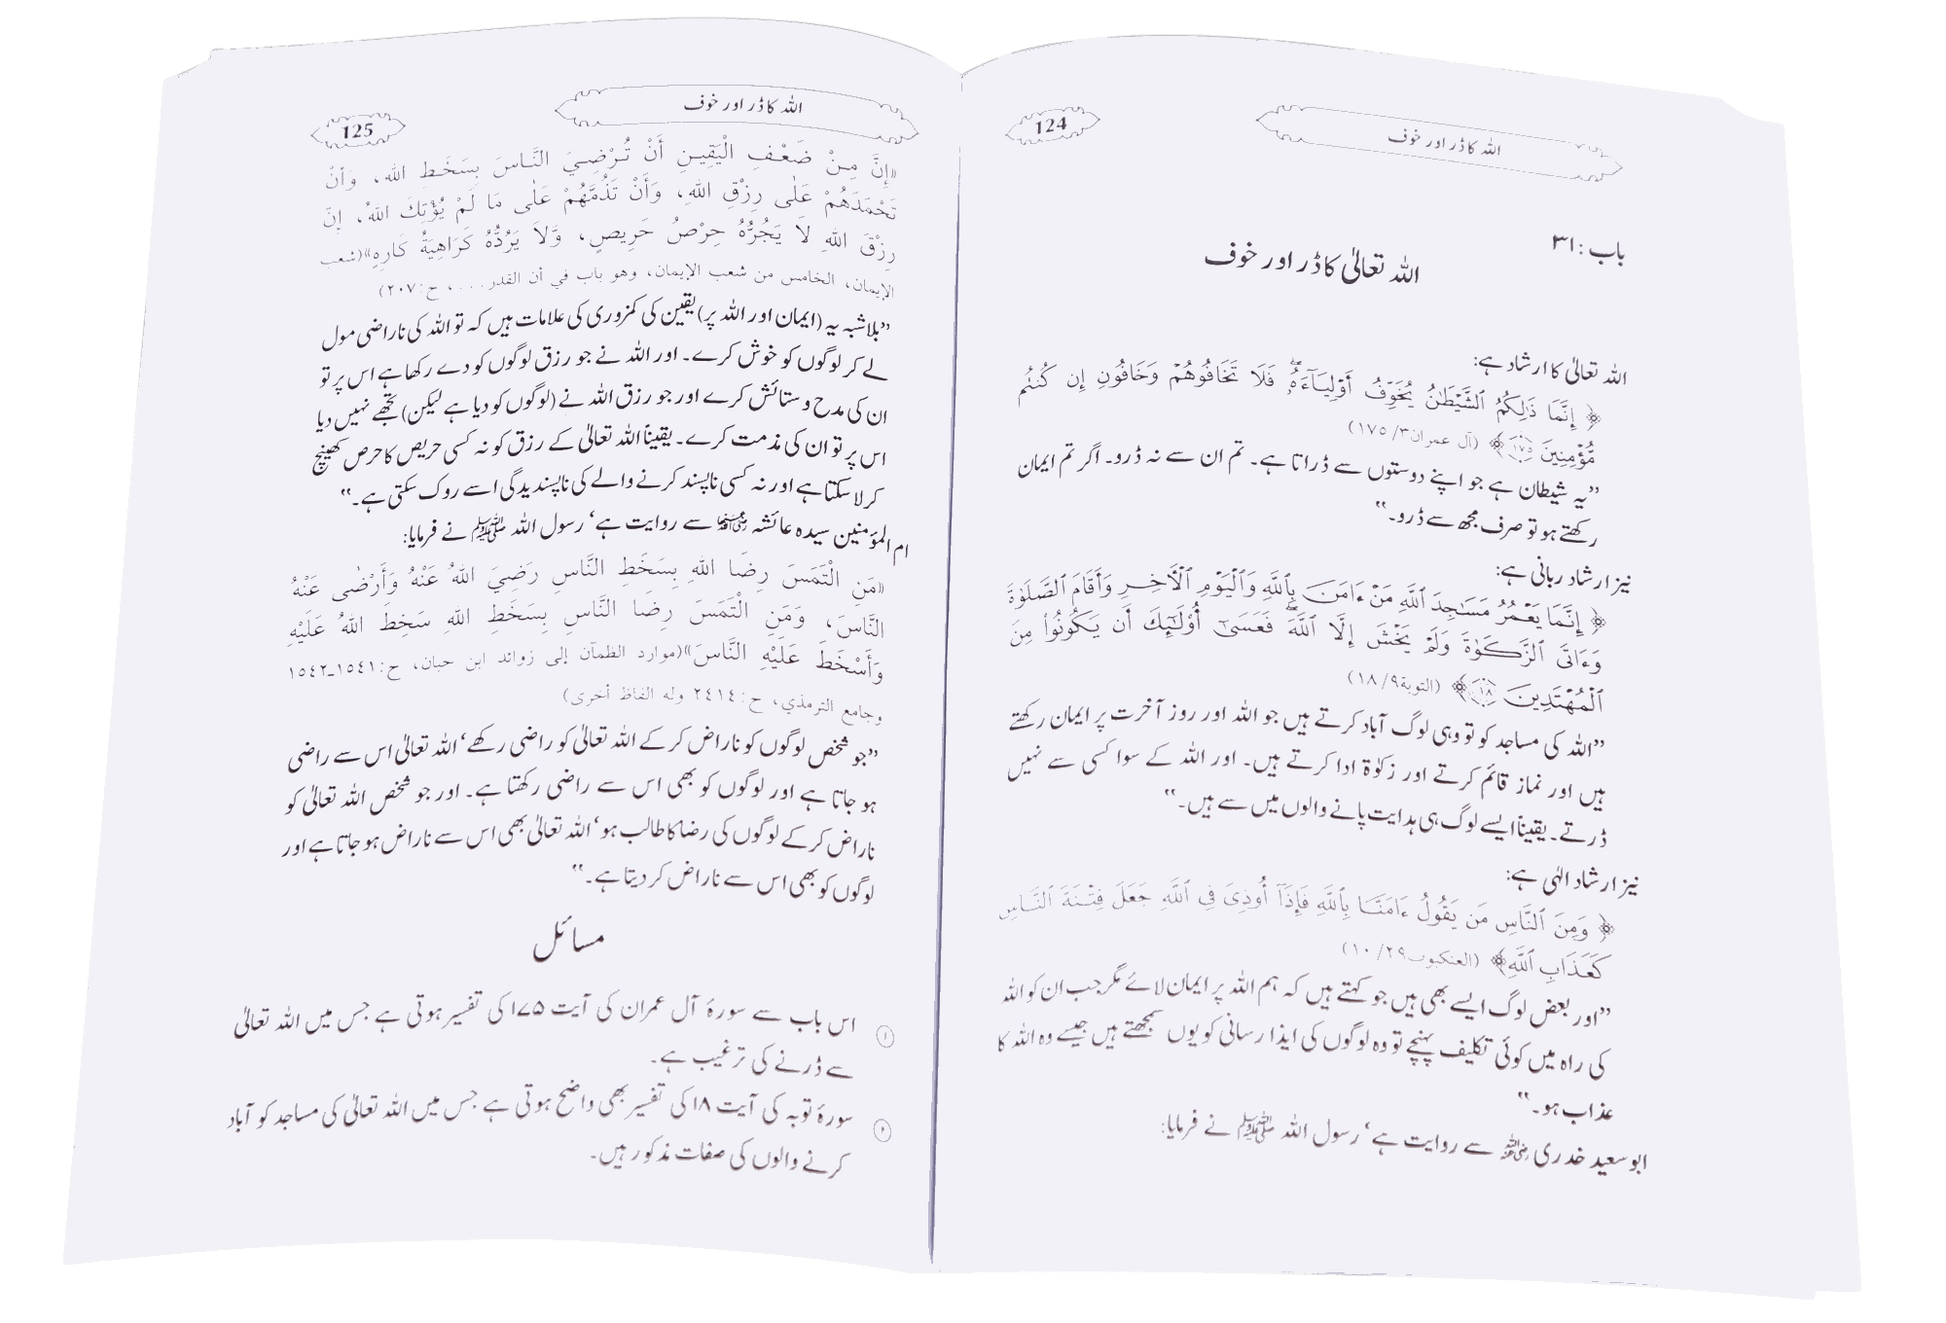 اللہ کا ڈر اور خوف
124
باب : ۳۱
اللہ تعالیٰ کا ڈر اور خوف
اللہ تعالیٰ کا ارشاد ہے:
﴿ إِنَّمَا ذَٰلِكُمُ ٱلشَّيْطَٰنُ يُخَوِّفُ أَوْلِيَآءَهُۥۖ فَلَا تَخَافُوهُمْ وَخَافُونِ إِن كُنتُم
مُّؤْمِنِينَ ١٧٥﴾ (آل عمران٣/ ١٧٥)
”یہ شیطان ہے جو اپنے دوستوں سے ڈراتا ہے۔ تم ان سے نہ ڈرو۔ اگر تم ایمان
رکھتے ہو تو صرف مجھ سے ڈرو۔“
نیز ارشاد ربانی ہے:
﴿ إِنَّمَا يَعْمُرُ مَسَٰجِدَ ٱللَّهِ مَنْ ءَامَنَ بِٱللَّهِ وَٱلْيَوْمِ ٱلْءَاخِرِ وَأَقَامَ ٱلصَّلَوٰةَ
وَءَاتَى ٱلزَّكَوٰةَ وَلَمْ يَخْشَ إِلَّا ٱللَّهَۖ فَعَسَىٰٓ أُو۟لَٰٓئِكَ أَن يَكُونُوا۟ مِنَ
ٱلْمُهْتَدِينَ ١٨﴾ (التوبة٩/ ١٨)
”اللہ کی مساجد کو تو وہی لوگ آباد کرتے ہیں جو اللہ اور روز آخرت پر ایمان رکھتے
ہیں اور نماز قائم کرتے اور زکوٰۃ ادا کرتے ہیں۔ اور اللہ کے سوا کسی سے نہیں
ڈرتے۔ یقیناً ایسے لوگ ہی ہدایت پانے والوں میں سے ہیں۔“
نیز ارشاد الٰہی ہے:
﴿ وَمِنَ ٱلنَّاسِ مَن يَقُولُ ءَامَنَّا بِٱللَّهِ فَإِذَآ أُوذِىَ فِى ٱللَّهِ جَعَلَ فِتْنَةَ ٱلنَّاسِ
كَعَذَابِ ٱللَّهِ﴾ (العنكبوت٢٩/ ١٠)
”اور بعض لوگ ایسے بھی ہیں جو کہتے ہیں کہ ہم اللہ پر ایمان لائے مگر جب ان کو اللہ
کی راہ میں کوئی تکلیف پہنچے تو وہ لوگوں کی ایذا رسانی کو یوں سمجھتے ہیں جیسے وہ اللہ کا
عذاب ہو۔“
ابو سعید خدری رضی اللہ عنہ سے روایت ہے‘ رسول اللہ ﷺ نے فرمایا:
اللہ کا ڈر اور خوف
125
«إِنَّ مِنْ ضَعْفِ الْيَقِينِ أَنْ تُرْضِيَ النَّاسَ بِسَخَطِ اللهِ، وَأَنْ
تَحْمَدَهُمْ عَلٰى رِزْقِ اللهِ، وَأَنْ تَذُمَّهُمْ عَلٰى مَا لَمْ يُؤْتِكَ اللهُ، إِنَّ
رِزْقَ اللهِ لَا يَجُرُّهُ حِرْصُ حَرِيصٍ، وَّلَا يَرُدُّهُ كَرَاهِيَةُ كَارِهٍ»(شعب
الإيمان، الخامس من شعب الإيمان، وهو باب في أن القدر....، ح:٢٠٧)
”بلاشبہ یہ (ایمان اور اللہ پر) یقین کی کمزوری کی علامات ہیں کہ تو اللہ کی ناراضی مول
لے کر لوگوں کو خوش کرے۔ اور اللہ نے جو رزق لوگوں کو دے رکھا ہے اس پر تو
ان کی مدح و ستائش کرے اور جو رزق اللہ نے (لوگوں کو دیا ہے لیکن) تجھے نہیں دیا
اس پر تو ان کی مذمت کرے۔ یقیناً اللہ تعالیٰ کے رزق کو نہ کسی حریص کا حرص کھینچ
کر لا سکتا ہے اور نہ کسی ناپسند کرنے والے کی ناپسندیدگی اسے روک سکتی ہے۔“
ام المؤمنین سیدہ عائشہ رضی اللہ عنہا سے روایت ہے‘ رسول اللہ ﷺ نے فرمایا:
«مَنِ الْتَمَسَ رِضَا اللهِ بِسَخَطِ النَّاسِ رَضِيَ اللهُ عَنْهُ وَأَرْضٰى عَنْهُ
النَّاسَ، وَمَنِ الْتَمَسَ رِضَا النَّاسِ بِسَخَطِ اللهِ سَخِطَ اللهُ عَلَيْهِ
وَأَسْخَطَ عَلَيْهِ النَّاسَ»(موارد الظمآن إلى زوائد ابن حبان، ح:١٥٤١-١٥٤٢
وجامع الترمذي، ح:٢٤١٤ وله الفاظ أخرى)
”جو شخص لوگوں کو ناراض کر کے اللہ تعالیٰ کو راضی رکھے‘ اللہ تعالیٰ اس سے راضی
ہو جاتا ہے اور لوگوں کو بھی اس سے راضی رکھتا ہے۔ اور جو شخص اللہ تعالیٰ کو
ناراض کر کے لوگوں کی رضا کا طالب ہو‘ اللہ تعالیٰ بھی اس سے ناراض ہو جاتا ہے اور
لوگوں کو بھی اس سے ناراض کر دیتا ہے۔“
مسائل
① اس باب سے سورۂ آل عمران کی آیت ۱۷۵ کی تفسیر ہوتی ہے جس میں اللہ تعالیٰ
سے ڈرنے کی ترغیب ہے۔
② سورۂ توبہ کی آیت ۱۸ کی تفسیر بھی واضح ہوتی ہے جس میں اللہ تعالیٰ کی مساجد کو آباد
کرنے والوں کی صفات مذکور ہیں۔